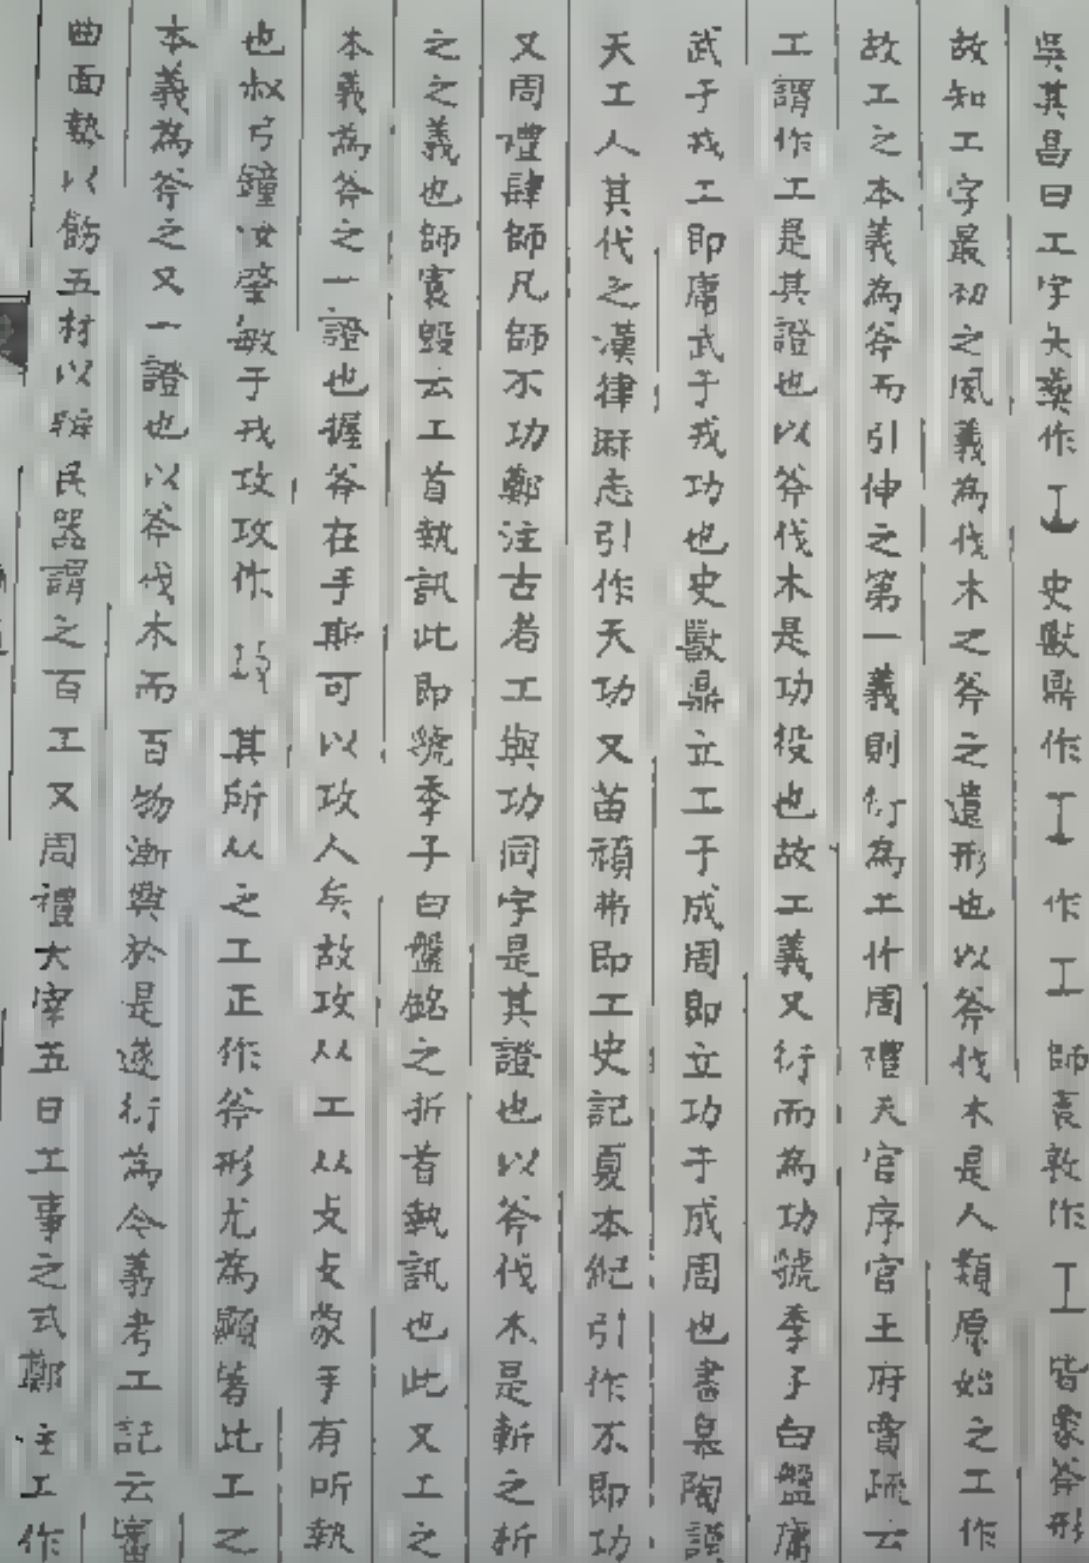 吳其昌曰工字夨彝作 史獸鼎作 作工師袁敦作工皆象斧形
故知工字最初之夙義為伐木之斧之遺形也以斧伐木是人類原始之工作
故工之本義為斧而引伸之第一義則衍為工作周禮天官序官王府賈疏云
工謂作工是其證也以斧伐木是功役也故工義又衍而為功虢季子白盤庸
武于戎工即庸武于戎功也史獸鼎立工于成周即立功于成周也書皋陶謨
天工人其代之漢律厤志引作天功又苗頑弗即工史記夏本紀引作不即功
又周禮肆師凡師不功鄭注古者工與功同字是其證也以斧伐木是斬之析
之之義也師寰毀云工首執訊此即虢季子白盤銘之折首執訊也此又工之
本義為斧之一證也握斧在手斯可以攻人矣故攻从工从攴攴象手有所執
也叔弓鐘汝肇敏于戎攻攻作 其所从之工正作斧形尤為顯著此工之
本義為斧之又一證也以斧伐木而百物漸興於是遂衍為今義考工記云審
曲面埶以飭五材以辨民器謂之百工又周禮大宰五曰工事之式鄭注工作